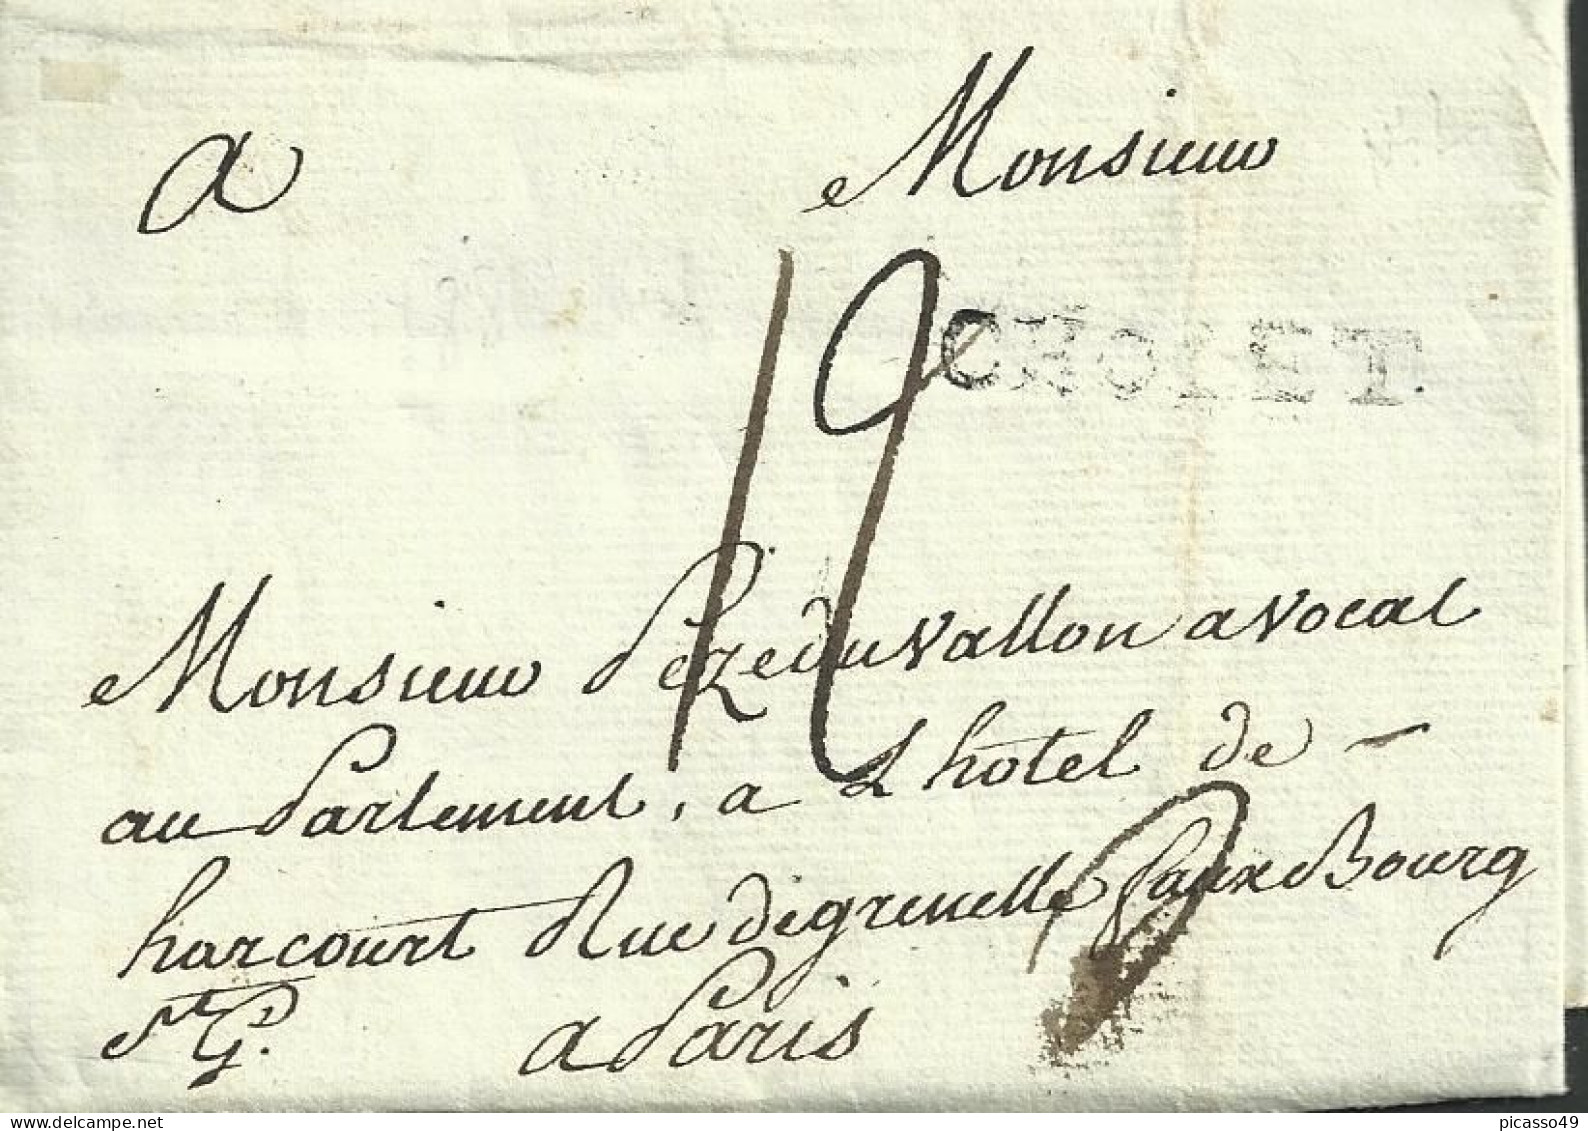 a Monsieur
19 CHOLET
Monsieur Pezeduvallon avocat
au Parlement, a L hôtel de -
harcourt Rue de grenelle fauxBourg
st G. a Paris
delcampe.net
picasso49